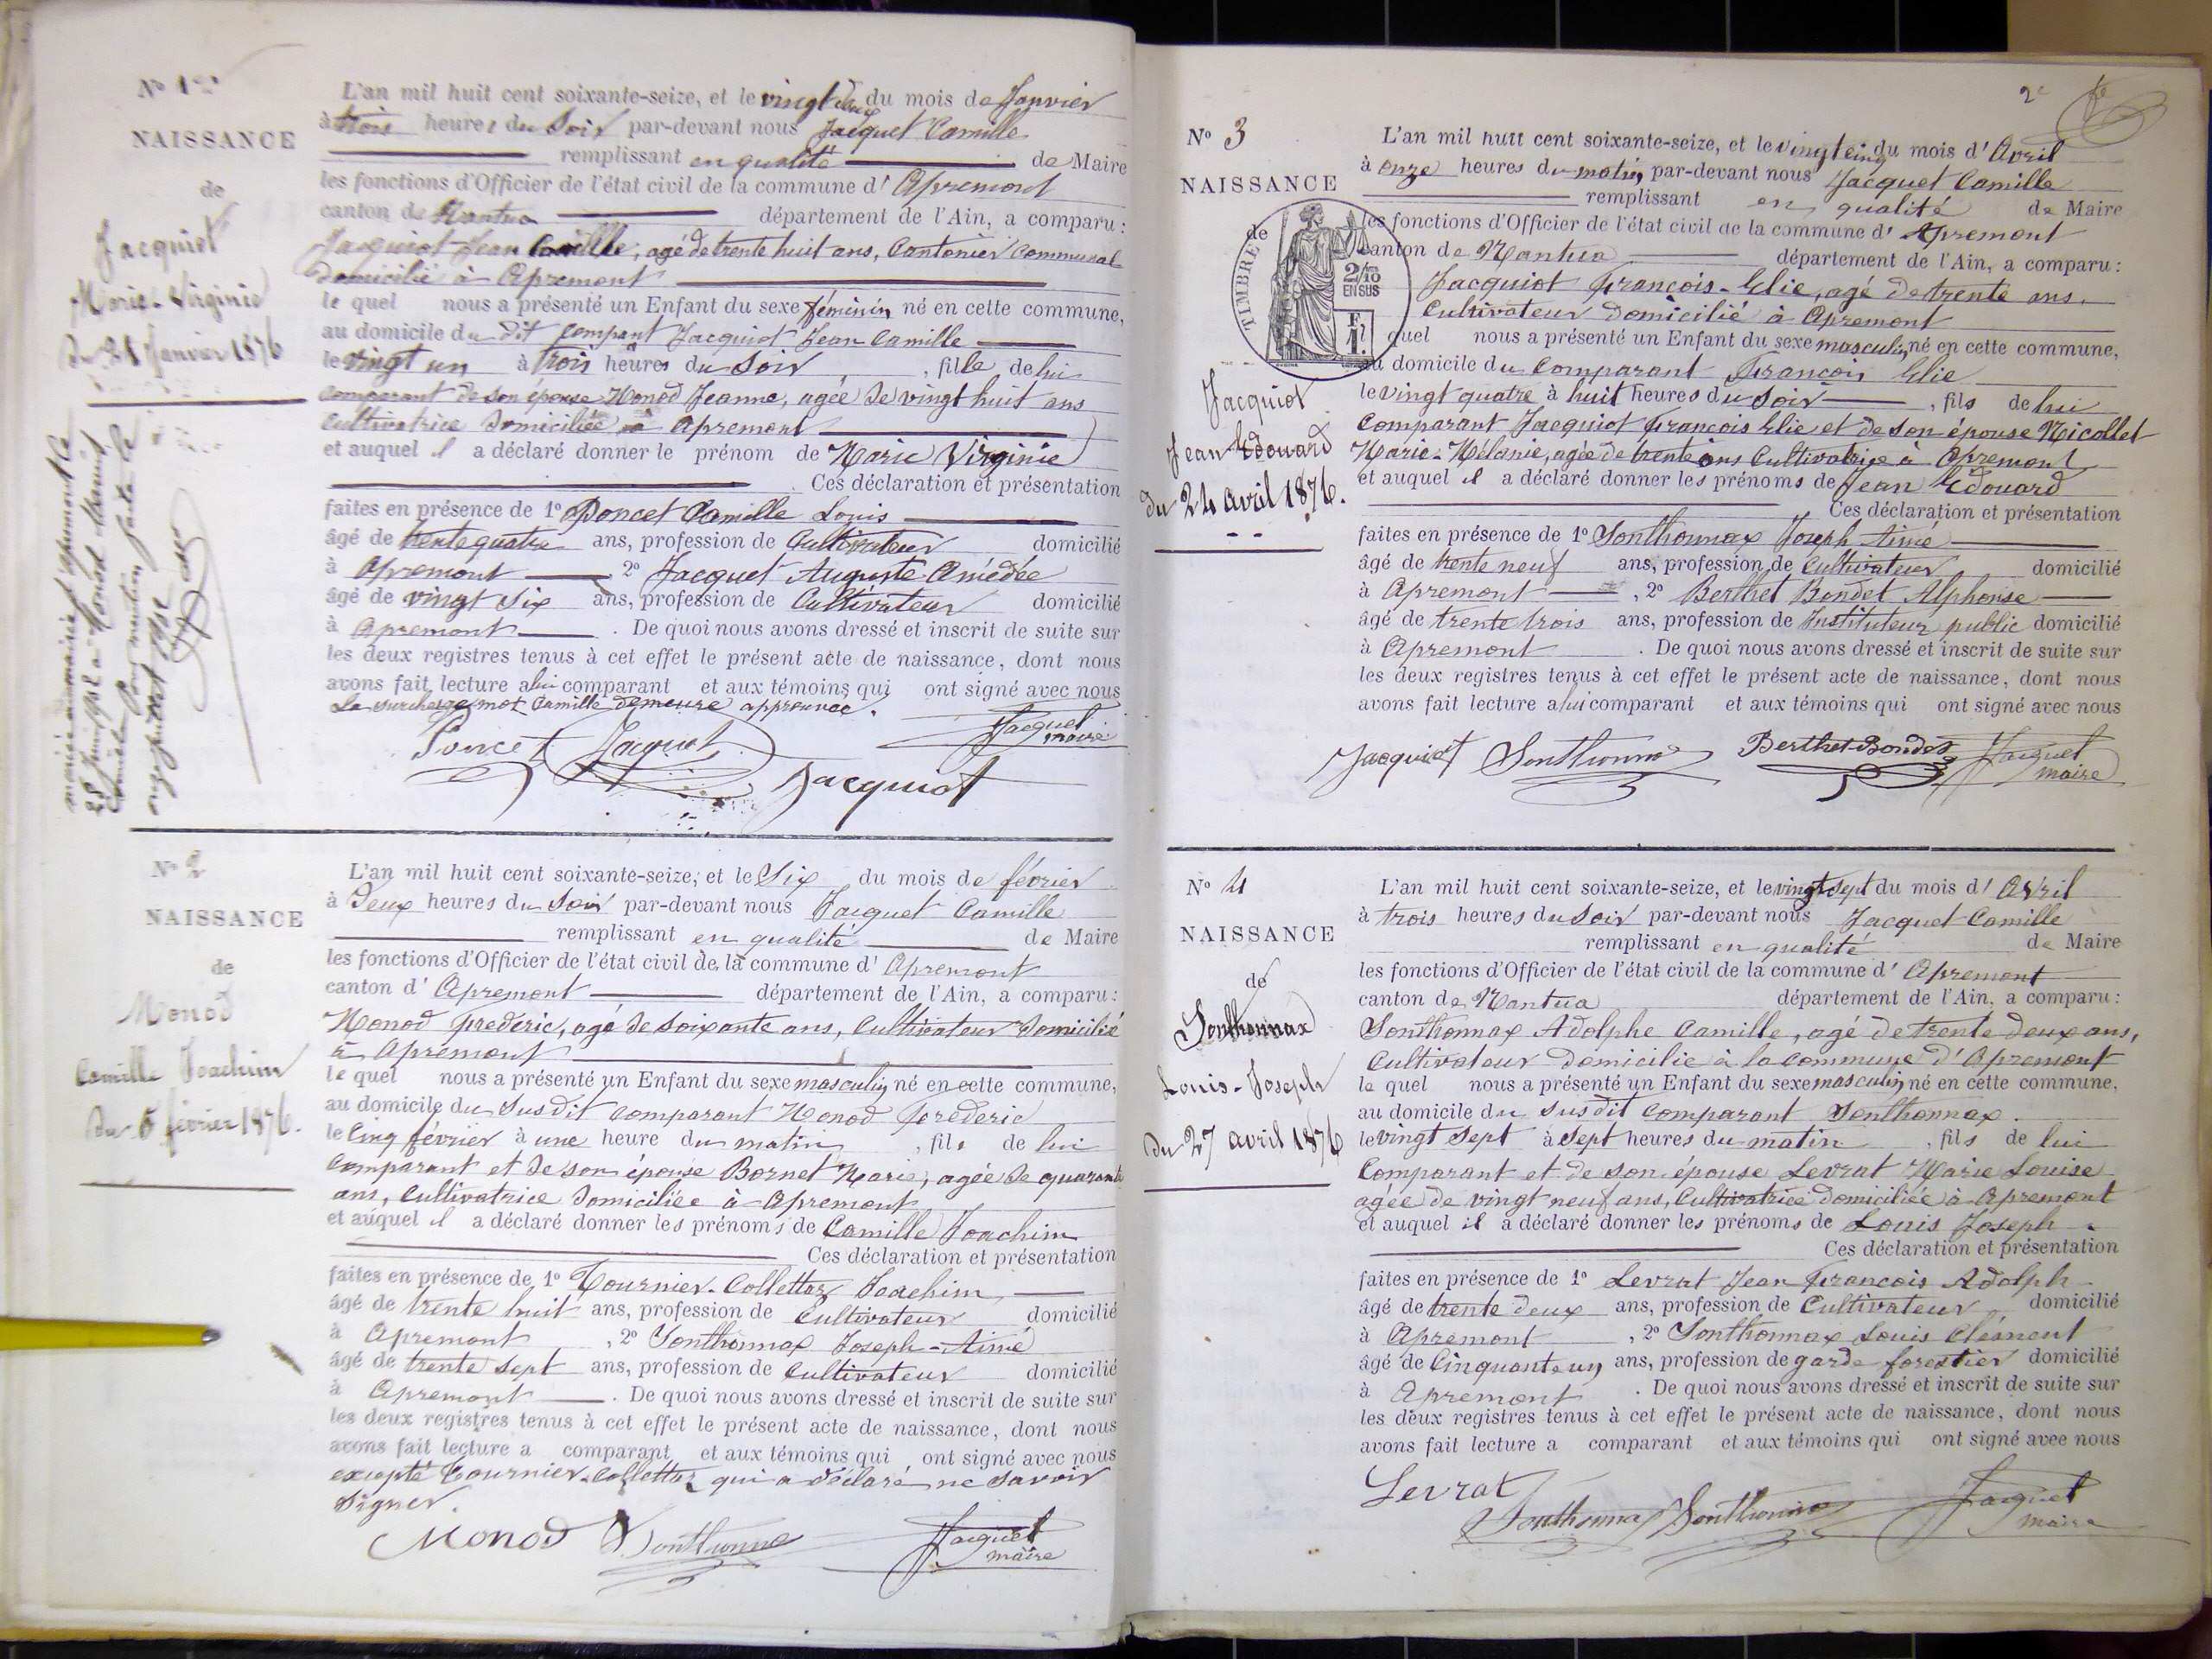 N° 1
NAISSANCE
de
Jacquiot
Marie-Virginie
du 21 Janvier 1876
L'an mil huit cent soixante-seize, et le vingt deux du mois de Janvier
à trois heures du Soir par-devant nous Jacquet Camille
remplissant en qualité de Maire
les fonctions d'Officier de l'état civil de la commune d' Apremont
canton de Nantua département de l'Ain, a comparu :
Jacquiot Jean Camille, agé de trente huit ans, Cantonier Communal
domicilié à Apremont
le quel nous a présenté un Enfant du sexe féminin né en cette commune,
au domicile du dit compant Jacquiot Jean Camille
le vingt un à trois heures du Soir, fille de lui
comparant de son épouse Monod Jeanne, agée de vingt huit ans
Cultivatrice domiciliée à Apremont
et auquel il a déclaré donner le prénom de Marie Virginie
Ces déclaration et présentation
faites en présence de 1° Poncet Camille Louis
âgé de trente quatre ans, profession de Cultivateur domicilié
à Apremont 2° Jacquet Auguste Amédée
âgé de vingt six ans, profession de Cultivateur domicilié
à Apremont . De quoi nous avons dressé et inscrit de suite sur
les deux registres tenus à cet effet le présent acte de naissance, dont nous
avons fait lecture a lui comparant et aux témoins qui ont signé avec nous
La surcharge mot Camille demeure approuvée.
Poncet Jacquet Jacquet maire
Jacquiot
N° 2
NAISSANCE
de
Monod
Camille Joachim
du 5 février 1876.
L'an mil huit cent soixante-seize, et le Six du mois de février
à deux heures du Soir par-devant nous Jacquet Camille
remplissant en qualité de Maire
les fonctions d'Officier de l'état civil de la commune d' Apremont
canton d' Apremont département de l'Ain, a comparu :
Monod frederic, agé de soixante ans, Cultivateur domicilié
à Apremont
le quel nous a présenté un Enfant du sexe masculin né en cette commune,
au domicile du Susdit comparant Monod frederic
le Cinq février à une heure du matin, fils de lui
Comparant et de son épouse Bornet Marie, agée de quarante
ans, Cultivatrice domiciliée à Apremont
et auquel il a déclaré donner les prénoms de Camille Joachim
Ces déclaration et présentation
faites en présence de 1° Tournier-Collettaz Joachim
âgé de trente huit ans, profession de Cultivateur domicilié
à Apremont, 2° Sonthonnax Joseph-Aimé
âgé de trente sept ans, profession de Cultivateur domicilié
à Apremont . De quoi nous avons dressé et inscrit de suite sur
les deux registres tenus à cet effet le présent acte de naissance, dont nous
avons fait lecture a comparant et aux témoins qui ont signé avec nous
excepté Tournier-Collettaz qui a déclaré ne savoir
signer.
Monod Sonthonnax Jacquet maire
2e
N° 3
NAISSANCE
de
TIMBRE
2/10
EN SUS
Jacquiot
Jean Edouard
du 24 avril 1876.
L'an mil huit cent soixante-seize, et le vingt cinq du mois d' Avril
à onze heures du matin par-devant nous Jacquet Camille
remplissant en qualité de Maire
les fonctions d'Officier de l'état civil de la commune d' Apremont
canton de Nantua département de l'Ain, a comparu :
Jacquiot François-Elie, agé de trente ans.
Cultivateur domicilié à Apremont
quel nous a présenté un Enfant du sexe masculin né en cette commune,
au domicile du Comparant François Elie
le vingt quatre à huit heures du soir, fils de lui
Comparant Jacquiot François Elie et de son épouse Nicollet
Marie-Mélanie, agée de trente ans Cultivatrice à Apremont
et auquel il a déclaré donner les prénoms de Jean Edouard
Ces déclaration et présentation
faites en présence de 1° Sonthonnax Joseph Aimé
âgé de trente neuf ans, profession de Cultivateur domicilié
à Apremont, 2° Berthet Bondet Alphonse
âgé de trente trois ans, profession de Instituteur public domicilié
à Apremont . De quoi nous avons dressé et inscrit de suite sur
les deux registres tenus à cet effet le présent acte de naissance, dont nous
avons fait lecture a lui comparant et aux témoins qui ont signé avec nous
Jacquiot Sonthonnax Berthet-Bondet Jacquet maire
N° 4
NAISSANCE
de
Sonthonnax
Louis-Joseph
du 27 avril 1876
L'an mil huit cent soixante-seize, et le vingt sept du mois d' Avril
à trois heures du Soir par-devant nous Jacquet Camille
remplissant en qualité de Maire
les fonctions d'Officier de l'état civil de la commune d' Apremont
canton de Nantua département de l'Ain, a comparu :
Sonthonnax Adolphe Camille, agé de trente deux ans,
Cultivateur domicilié à la commune d'Apremont
le quel nous a présenté un Enfant du sexe masculin né en cette commune,
au domicile du susdit comparant Sonthonnax.
le vingt sept à sept heures du matin, fils de lui
Comparant et de son épouse Levrat Marie Louise
agée de vingt neuf ans, Cultivatrice domiciliée à Apremont
et auquel il a déclaré donner les prénoms de Louis Joseph
Ces déclaration et présentation
faites en présence de 1° Levrat Jean François Adolph
âgé de trente deux ans, profession de Cultivateur domicilié
à Apremont, 2° Sonthonnax Louis Clément
âgé de Cinquante un ans, profession de garde forestier domicilié
à Apremont . De quoi nous avons dressé et inscrit de suite sur
les deux registres tenus à cet effet le présent acte de naissance, dont nous
avons fait lecture a comparant et aux témoins qui ont signé avec nous
Levrat
Sonthonnax Sonthonnax Jacquet maire